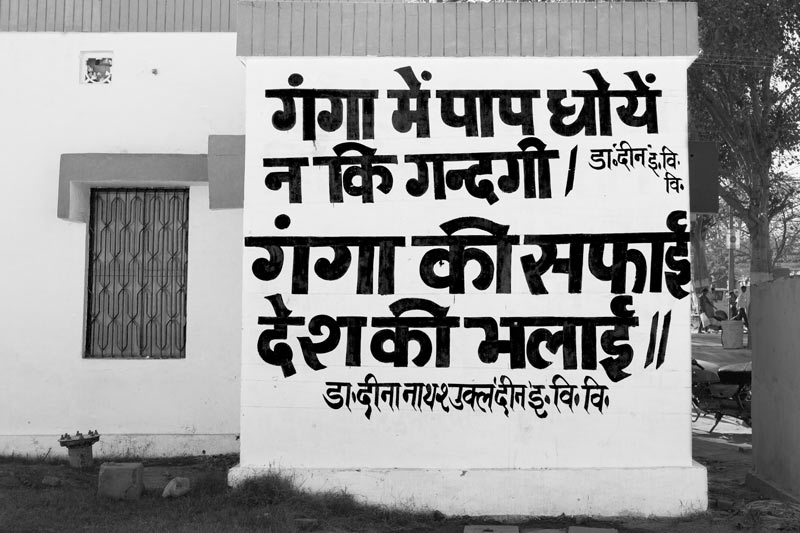 गंगा में पाप धोयें
न कि गन्दगी।
डा॰ दीन इ॰ वि॰
वि॰
गंगा की सफाई
देश की भलाई॥
डा॰ दीना नाथ शुक्ल दीन इ॰ वि॰ वि॰